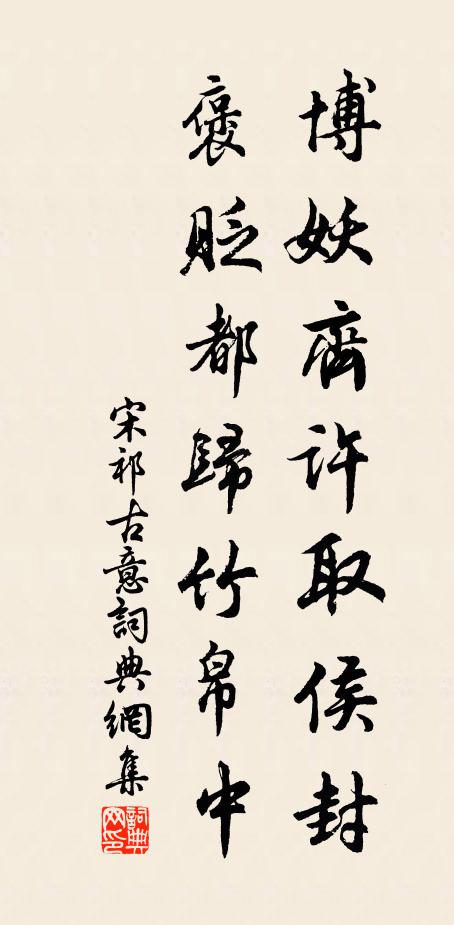 博妖齊許取侯封
褒貶都歸竹帛中
宋祁古意詞典網集
詞典网印